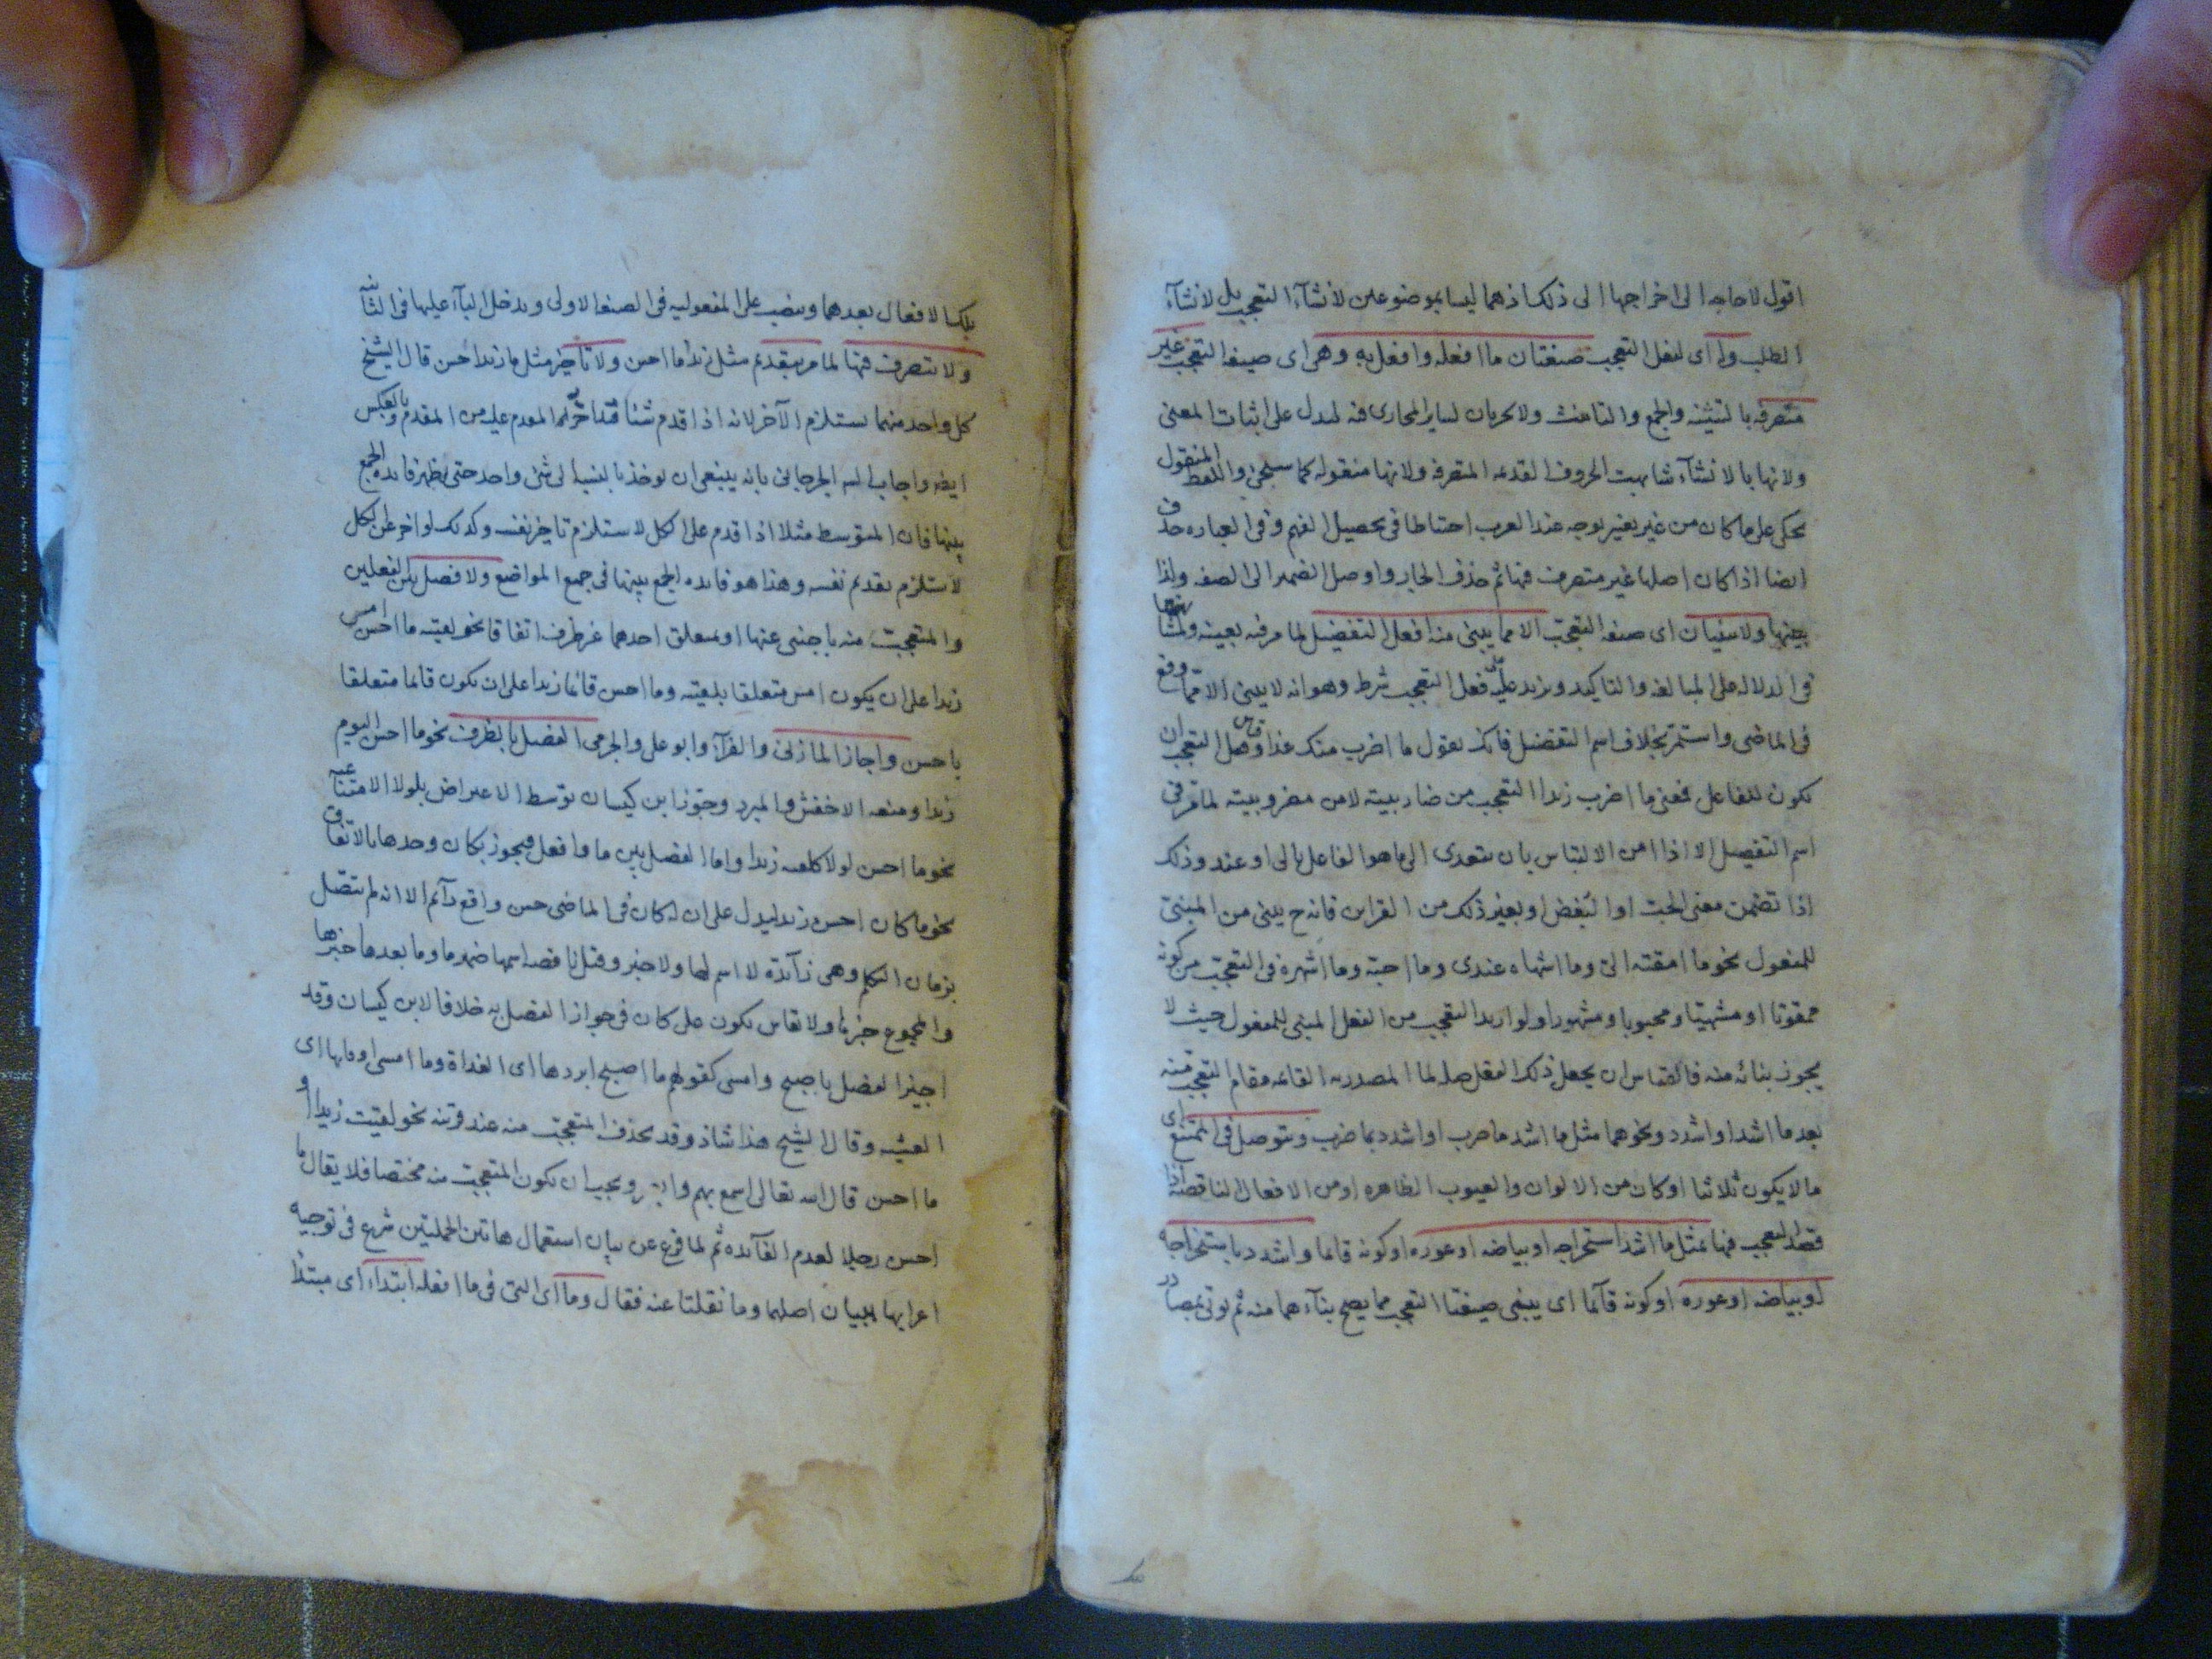 اقول لا حاجه الى اخراجها الى ذلك اذ هما ليسا بموضوعين لانشآء التعجب بل لانشآء
الطلب وله اى لفعل التعجب صيغتان ما افعله وافعل به وهى اى صيغه التعجب غير
متصرفه بالتثنيه والجمع والتانيث ولا لساير المجارى فيه ليدل على اثبات المعنى
ولانها بالانشآء شابهت الحروف المتصرفه ولانها منقوله كما سيجئ واللفظ المنقول
يحكى على ما كان من غير تغيير بوجه عند العرب احتياطا فى تحصيل الفهم وفى العباره حذف
ايضا اذا كان اصلها غير متصرف فيها ثم حذف الجار واوصل الضمير الى الصفه ولذا
ولا يبنيان اى صيغه التعجب الا مما يبنى منه افعل التفضيل لما مر فيه بعينه ولمشابهتهما
فى الدلاله على المبالغه والتاكيد ويزيد عليه فعل التعجب شرط وهو انه لا يبنى الا مما وقع
فى الماضى واستمر بخلاف اسم التفضيل فانك تقول ما اضرب منك غدا وقياس فعل التعجب ان
يكون للفاعل فمعنى ما اضرب زيدا التعجب من ضاربيته لا من مضروبيته لما مر فى
اسم التفضيل الا اذا امن الالتباس بان يتعدى الى ما هو الفاعل بالى او عند وذلك
اذا تضمن معنى الحب او البغض او بغير ذلك من القراين فانه ح يبنى من المبنى
للمفعول نحو ما امقته الى وما اشهاه عندى وما احبه وما اشهره فى التعجب من كونه
ممقوتا او مشهيا ومحبوبا ومشهورا ولو اريد التعجب من الفعل المبنى للمفعول حيث لا
يجوز بنائه منه فالقياس ان يجعل ذلك الفعل صله لما المصدريه القائمه مقام التعجب منه
بعد ما اشد او اشدد ونحوهما مثل ما اشد ما ضرب او اشدد بما ضرب ويتوصل فى الممتنع اى
ما لا يكون ثلاثيا او كان من الالوان والعيوب الظاهره او من الافعال الناقصه اذا
قصد التعجب فيها بمثل ما اشد استخراجه او بياضه او عوره او كونه قائما واشدد باستخراجه
او بياضه او عوره او كونه قآئما اى يبنى صيغتا التعجب مما يصح بنآءهما منه ثم يوتى بمصادر
تلك الافعال بعدهما وينصب على المفعوليه فى الصيغه الاولى ويدخل البآء عليها فى الثانيه
ولا يتصرف فيها لما مر بتقديم مثل زيدا ما احسن ولا تاخير مثل ما زيدا احسن قال الشيخ
كل واحد منهما يستلزم الآخر لانه اذا قدم شئ فقد اخر المقدم عليه من المقدم وبالعكس
ايضه واجاب السيد الجرجانى بانه ينبغى ان يوخذ بالنسبه الى شئ واحد حتى يظهر فايده الجمع
بينها فان المتوسط مثلا اذا قدم على الكل لا يستلزم تاخير نفسه وكذلك لو اخر عن الكل
لا يستلزم تقديم نفسه وهذا هو فايده الجمع بينها فى جميع المواضع ولا فصل بين الفعلين
والمتعجب منه باجنبى عنها او بمتعلق احدهما غير ظرف اتفاقا نحو لقيته ما احسن امس
زيدا على ان يكون امس متعلقا بلقيته وما احسن قائما زيدا على ان يكون قائما متعلقا
باحسن واجاز المازنى والفرآء وابو على والجرمى الفصل بالظرف نحو ما احسن اليوم
زيدا ومنعه الاخفش والمبرد وجوز ابن كيسان توسط الاعتراض بلولا الامتناعيه
نحو ما احسن لولا كلفه زيدا واما الفصل بين ما وافعل فيجوز بكان وحدها بالاتفاق
نحو ما كان احسن زيدا ليدل على ان له كان فى الماضى حسن واقع دآئم الا انه لم يتصل
بزمان التكلم وهى زآئدة لا اسم لها ولا خبر وقيل ناقصه اسمها ضمير ما وما بعدها خبرها
والمجموع خبر ما ولا يقاس يكون على كان فى جواز الفصل به خلافا لابن كيسان وقد
اجيز الفصل باصبح وامسى كقولهم ما اصبح ابردها اى الغداة وما امسى ادفاها اى
العشيه وقال الشيخ هذا شاذ وقد يحذف المتعجب منه عند قرينه نحو لقيت زيدا و
ما احسن قال الله تعالى اسمع بهم وابصر ويجب ان يكون المتعجب منه مختصا فلا يقال ما
احسن رجلا لعدم الفآئده ثم لما فرغ عن بيان استعمال هاتين الجملتين شرع فى توجيه
اعرابها ببيان اصلهما وما نقلتا عنه فقال وما اى التى فى ما افعله ابتداء اى مبتدا